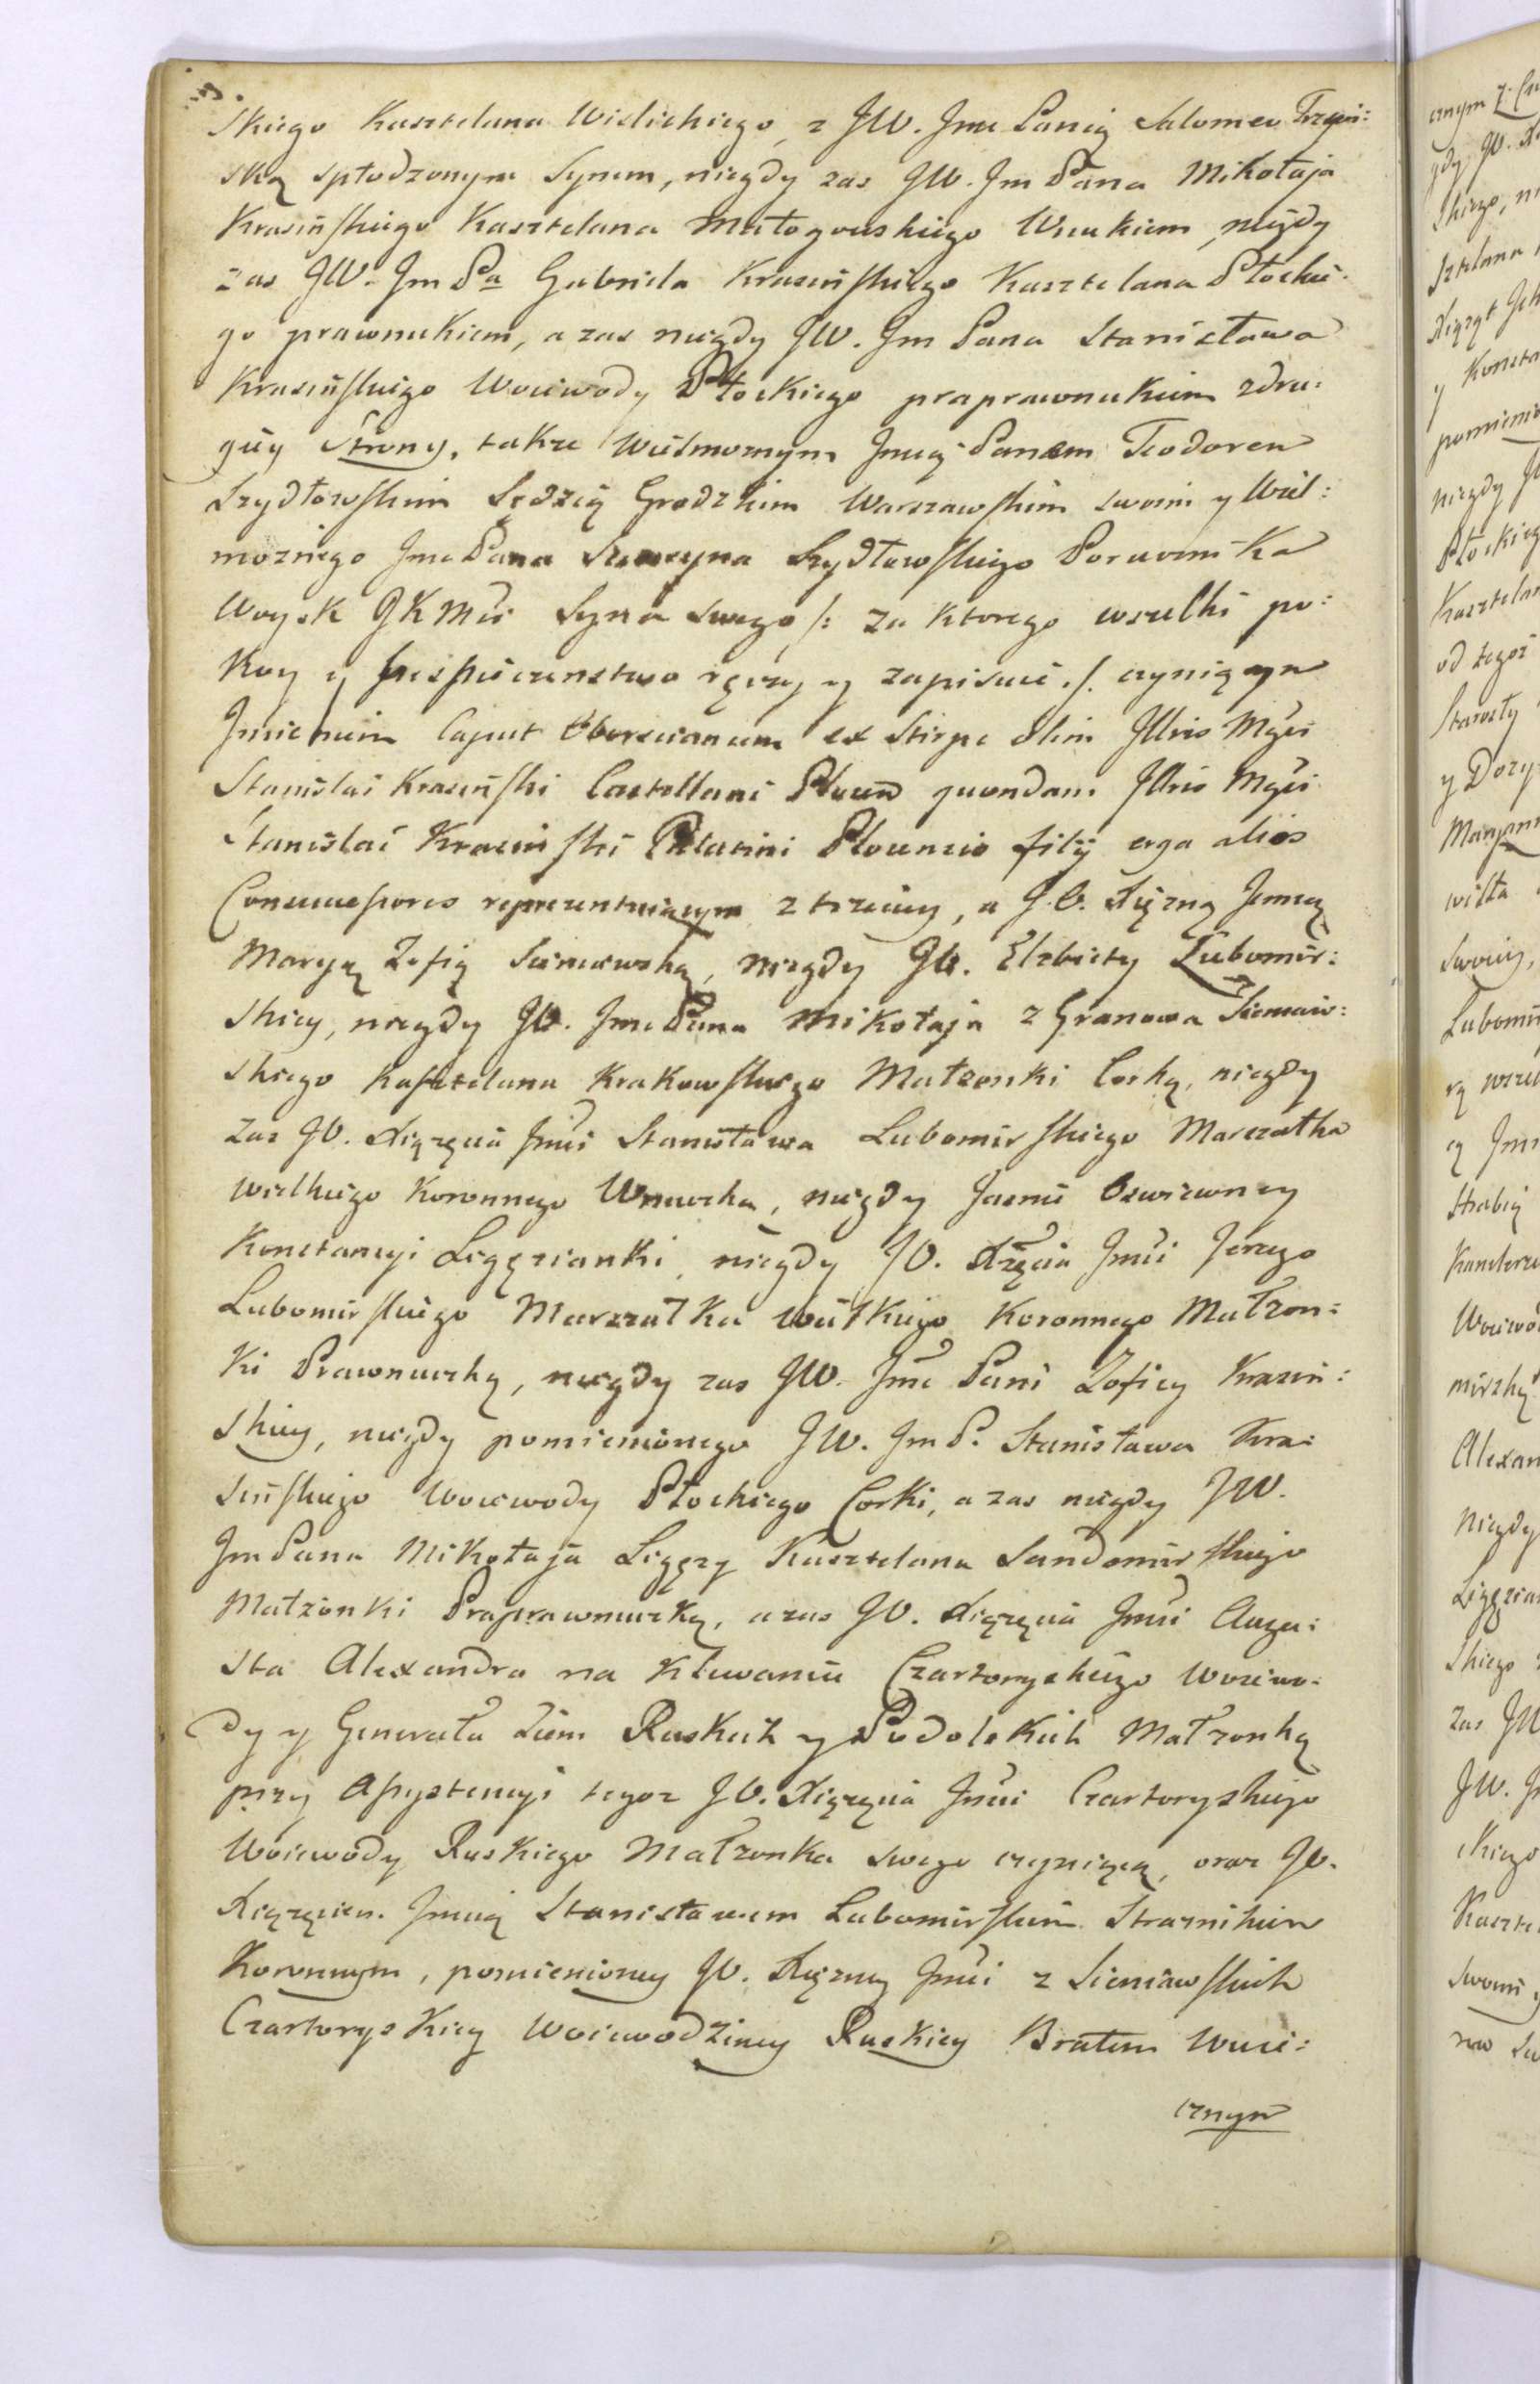 skiego Kasztelana Wislickiego, z JW. Jmc Panią Salomeą Trzciń:
ską spłodzonym Synem, niegdy zas JW. Jm Pana Mikołaja
Krasińskiego Kasztelana Małogoskiego Wnukiem, niegdy
zas JW. Jm Pa Gabriela Krasińskiego Kasztelana Płockie:
go prawnukiem, a zas niegdy JW. Jm Pana Stanisława
Krasińskiego Woiewody Płockiego praprawnukiem z dru:
giey Strony, takze Wielmoznym Jmcią Panem Teodorem
Szydłowskim Sędzią Grodzkim Warszawskim swoim y Wiel:
moznego Jmc Pana Szydłowskiego Porucznika
Woysk JKMci Syna swego /: za ktorego wszelki po:
koy y bespieczenstwo ręczy y zapisuie :/ czyniącym
Imieniem Caput ex Stirpe olim Illris Mgci
Stanislai Krasiński Castellani Plocen quondam Illris Mgci
Stanislai Krasiński Palatini Plocensis filij erga alios
Consuccessores reprezentuiącym z trzeciey, a J.O. Xięzną Jmcią
Maryą Zofią Sieniawską, niegdy JO. Elzbiety Lubomir:
skiey, niegdy JW. Jmc Pana Mikołaja z Granowa Sieniaw:
skiego Kasztelana Krakowskiego Małzonki Corką, niegdy
zas JO. Xiązęcia Jmci Stanisława Lubomirskiego Marszałka
wielkiego Koronnego Wnuczką, niegdy Jasnie Oswieconey
Konstancyi Ligęzianki, niegdy JO. Xżęcia Jmci Jerzego
Lubomirskiego Marszałka Wielkiego Koronnego Małzon:
ki Prawnuczką, niegdy zas JW. Jmc Pani Zofiey Krasiń:
skiey, niegdy pomienionego JW. Jm P. Stanisława Kra:
sińskiego Woiewody Płockiego Corki, a zas niegdy JW.
Jm Pana Mikołaja Ligęzy Kasztelana Sandomirskiego
Małzonki Praprawnuczką, a zas JO. Xiązęcia Jmci Augu:
sta Alexandra na Klewaniu Czartoryskiego Woiewo:
dy y Generała Ziem Ruskich y Podolskich Małzonką
przy Assystencyi tegoz JO. Xiązęcia Jmci Czartoryskiego
Woiewody Ruskiego Małzonka swego czyniącą, oraz JO.
Xiązęciem Jmcią Stanisławem Lubomirskim Straznikiem
Koronnym, pomienioney JO. Xięzney Jmci z Sieniawskich
Czartoryskiey Woiewodziney Ruskiey Bratem Wuie:
cznym